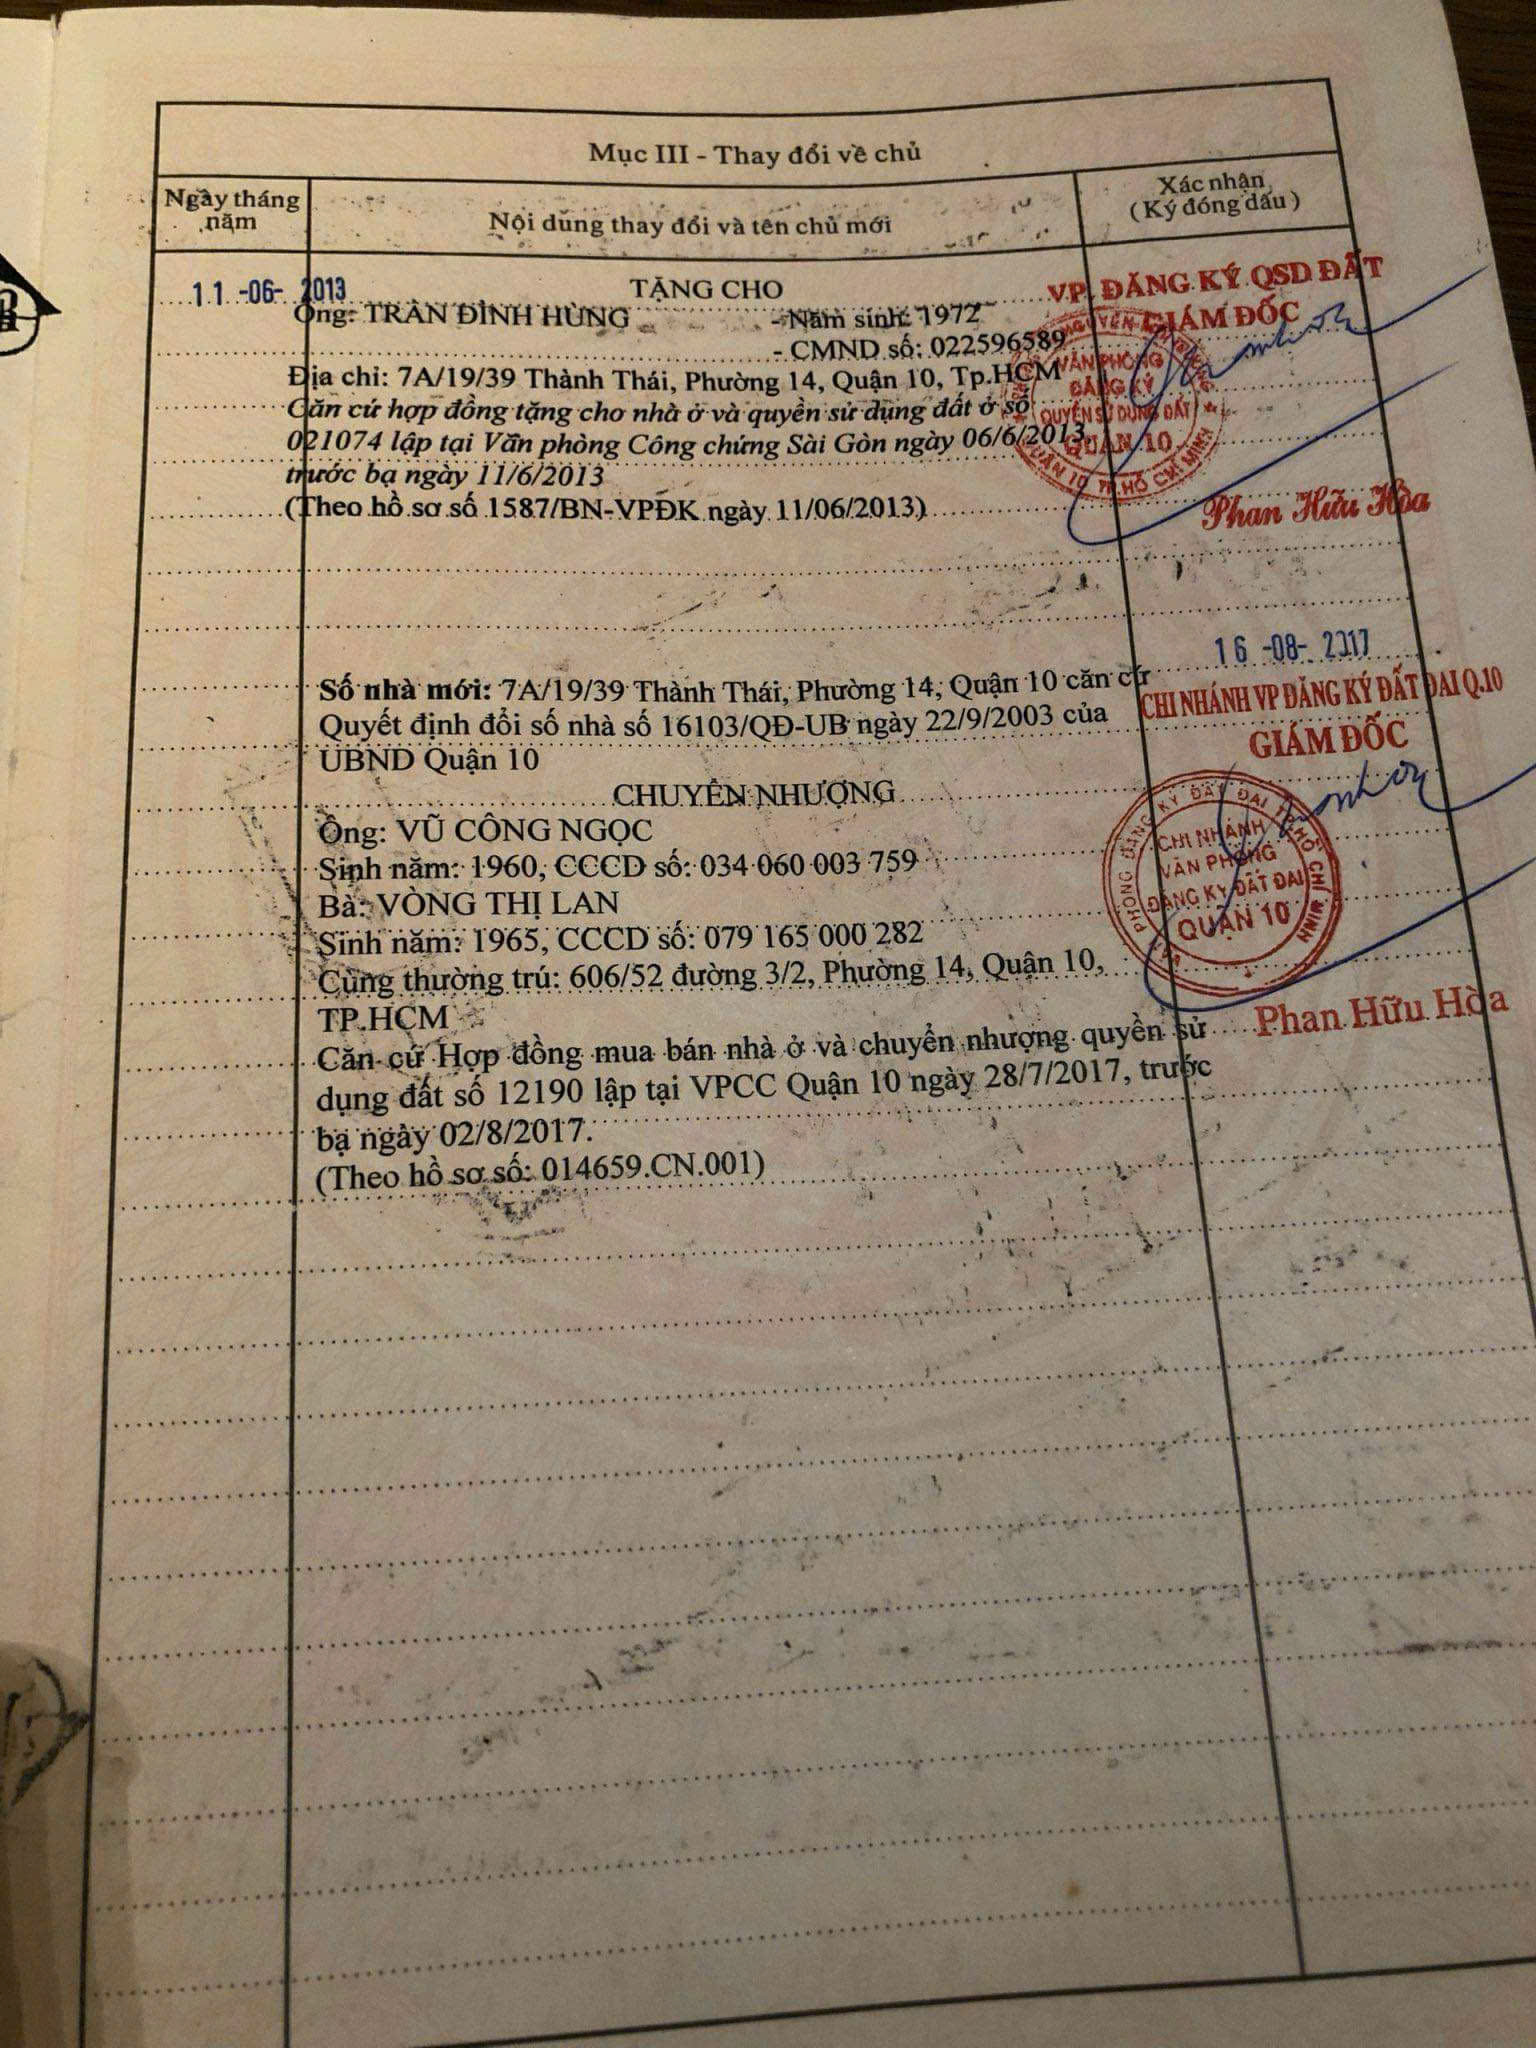 Mục III - Thay đổi về chủ
Ngày tháng năm
Nội dung thay đổi và tên chủ mới
Xác nhận
(Ký đóng dấu)
11-06-2013
TẶNG CHO
Ông: TRẦN ĐÌNH HÙNG - Năm sinh: 1972
- CMND số: 022596589
Địa chỉ: 7A/19/39 Thành Thái, Phường 14, Quận 10, Tp.HCM
Căn cứ hợp đồng tặng cho nhà ở và quyền sử dụng đất ở số
021074 lập tại Văn phòng Công chứng Sài Gòn ngày 06/6/2013,
trước bạ ngày 11/6/2013
(Theo hồ sơ số 1587/BN-VPĐK ngày 11/06/2013)
VP. ĐĂNG KÝ QSD ĐẤT
GIÁM ĐỐC
VĂN PHÒNG
ĐĂNG KÝ
QUYỀN SỬ DỤNG ĐẤT
QUẬN 10
QUẬN 10 TP.HỒ CHÍ MINH
Phan Hữu Hòa
16-08-2017
Số nhà mới: 7A/19/39 Thành Thái, Phường 14, Quận 10 căn cứ
Quyết định đổi số nhà số 16103/QĐ-UB ngày 22/9/2003 của
UBND Quận 10
CHUYỂN NHƯỢNG
Ông: VŨ CÔNG NGỌC
Sinh năm: 1960, CCCD số: 034 060 003 759
Bà: VÒNG THỊ LAN
Sinh năm: 1965, CCCD số: 079 165 000 282
Cùng thường trú: 606/52 đường 3/2, Phường 14, Quận 10,
TP.HCM
Căn cứ Hợp đồng mua bán nhà ở và chuyển nhượng quyền sử
dụng đất số 12190 lập tại VPCC Quận 10 ngày 28/7/2017, trước
bạ ngày 02/8/2017.
(Theo hồ sơ số: 014659.CN.001)
CHI NHÁNH VP ĐĂNG KÝ ĐẤT ĐAI Q.10
GIÁM ĐỐC
PHÒNG ĐĂNG KÝ ĐẤT ĐAI HỒ CHÍ MINH
CHI NHÁNH
VĂN PHÒNG
ĐĂNG KÝ ĐẤT ĐAI
QUẬN 10
Phan Hữu Hòa